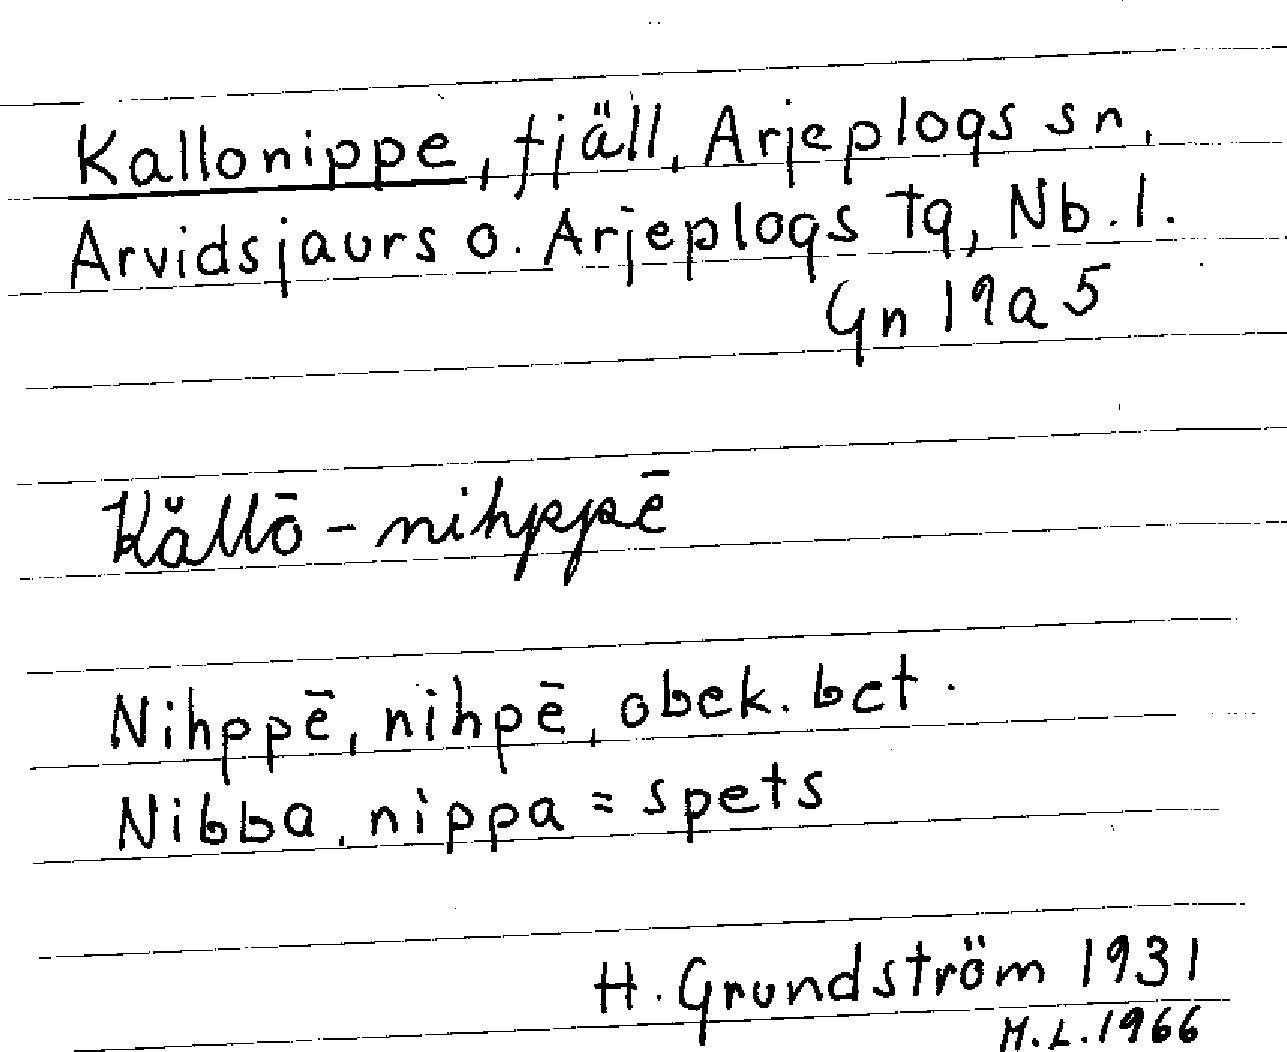 Kallonippe, fjäll, Arjeplogs sn,
Arvidsjaurs o. Arjeplogs Tg, Nb.l.
Gn 19a5
Kållō - nihppē
Nihppē, nihpē, obek. bet.
Nibba, nippa = spets
H. Grundström 1931
M.L.1966